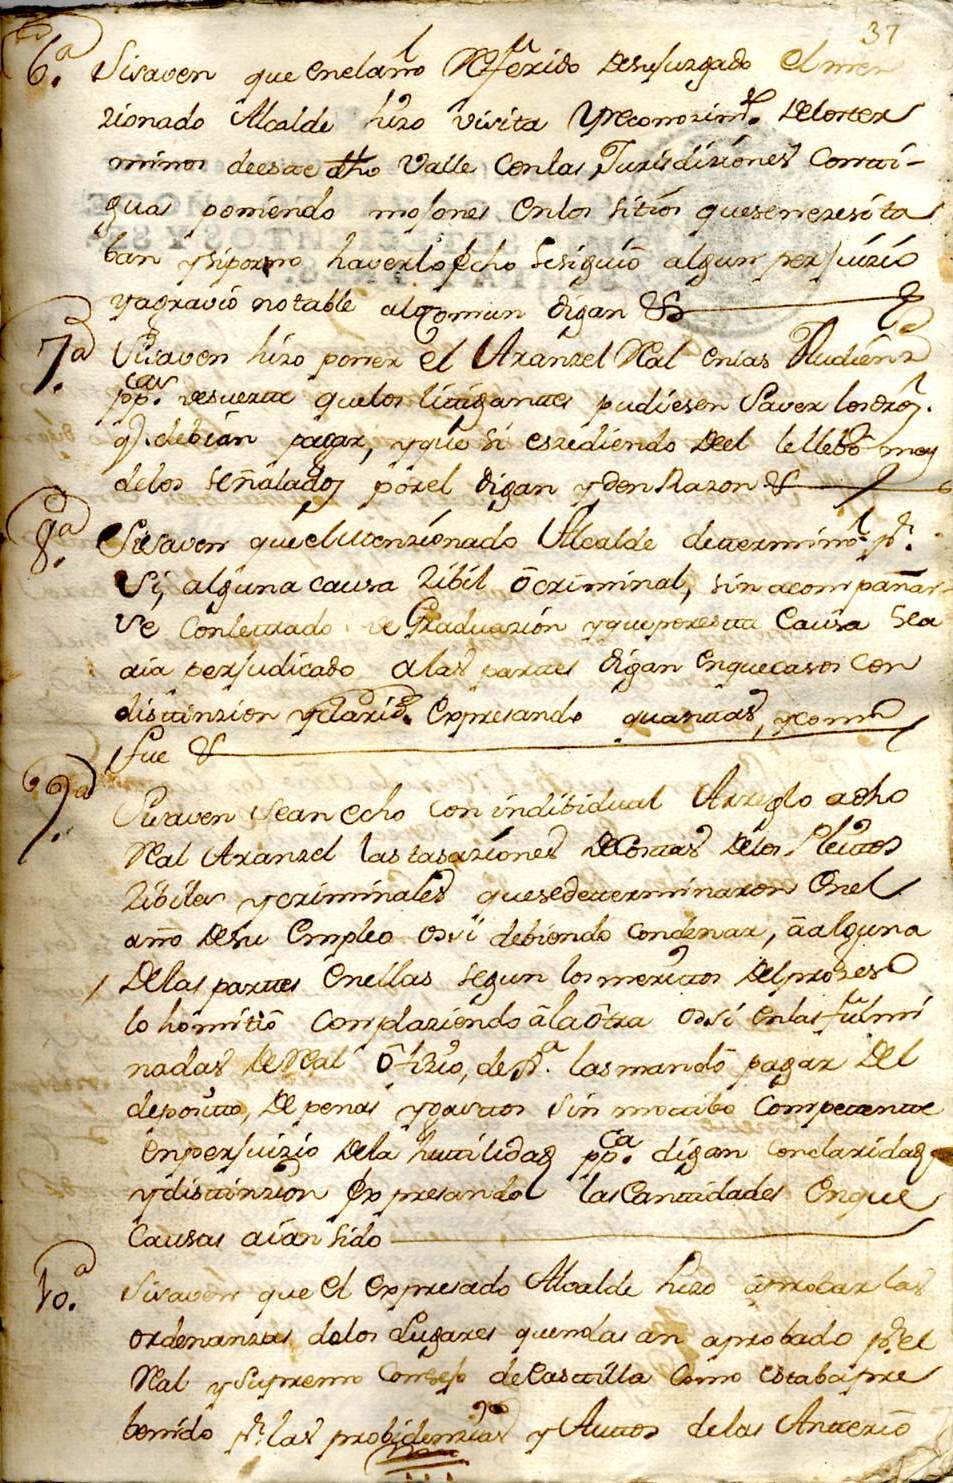 37
6.ª Sisaven que enelaño Referido desujuzgado el men
zionado Alcalde hizo visita yreconozim.to delos ter
minos deeste dho Valle conlas Jurisdiziones conti-
guas poniendo mojones enlos sitios quesenezesita
ban ysipor no haverlo echo sesiguió algun perjuizio
yagravio notable alComun digan &
7.ª Sisaven hizo poner el Aranzel Real enlas Audienz
pp.cas desuerte quelos litigantes pudiesen Saver losdros.
q.e debian pagar, yque si eszediendo deel lellebó mas
delos señalados porel digan y den Razon &
8.ª Sisaven queelmenzionado Alcalde determinó p.r
si, alguna causa zibil ó criminal, sin acompañar-
se conletrado de Graduazion yqueporesta Causa sea
aia perjudicado alas partes digan enquecasos con
distinzion yclarid.d expresando quantas, ycomo
fue &
9.ª Sisaven sean echo con indibidual Arreglo adho
Real Aranzel lastasaziones deCostas delos Pleitos
zibiles ycriminales quesedeterminaron enel
año desu empleo osi debiendo condenar, áalguna
delas partes enellas segun losmeritos delprozeso
lo homitió complaziendo álaótra osi enlas fulmi
nadas de Real ofizio, de p.r las mandó pagar del
deposito, de penas ygastos sin motibo competente
enperjuizio dela hutilidad pp.ca digan conclaridad
ydistinzion expresando las Cantidades enque
causas aian sido
10.ª Sisaven que el expresado Alcalde hizo áprobar las
ordenanzas delos Lugares quenolas an aprobado p.r el
Real ySupremo Consejo deCastilla como estabapre
benido p.r las probidenzias y Autos delas Anterio